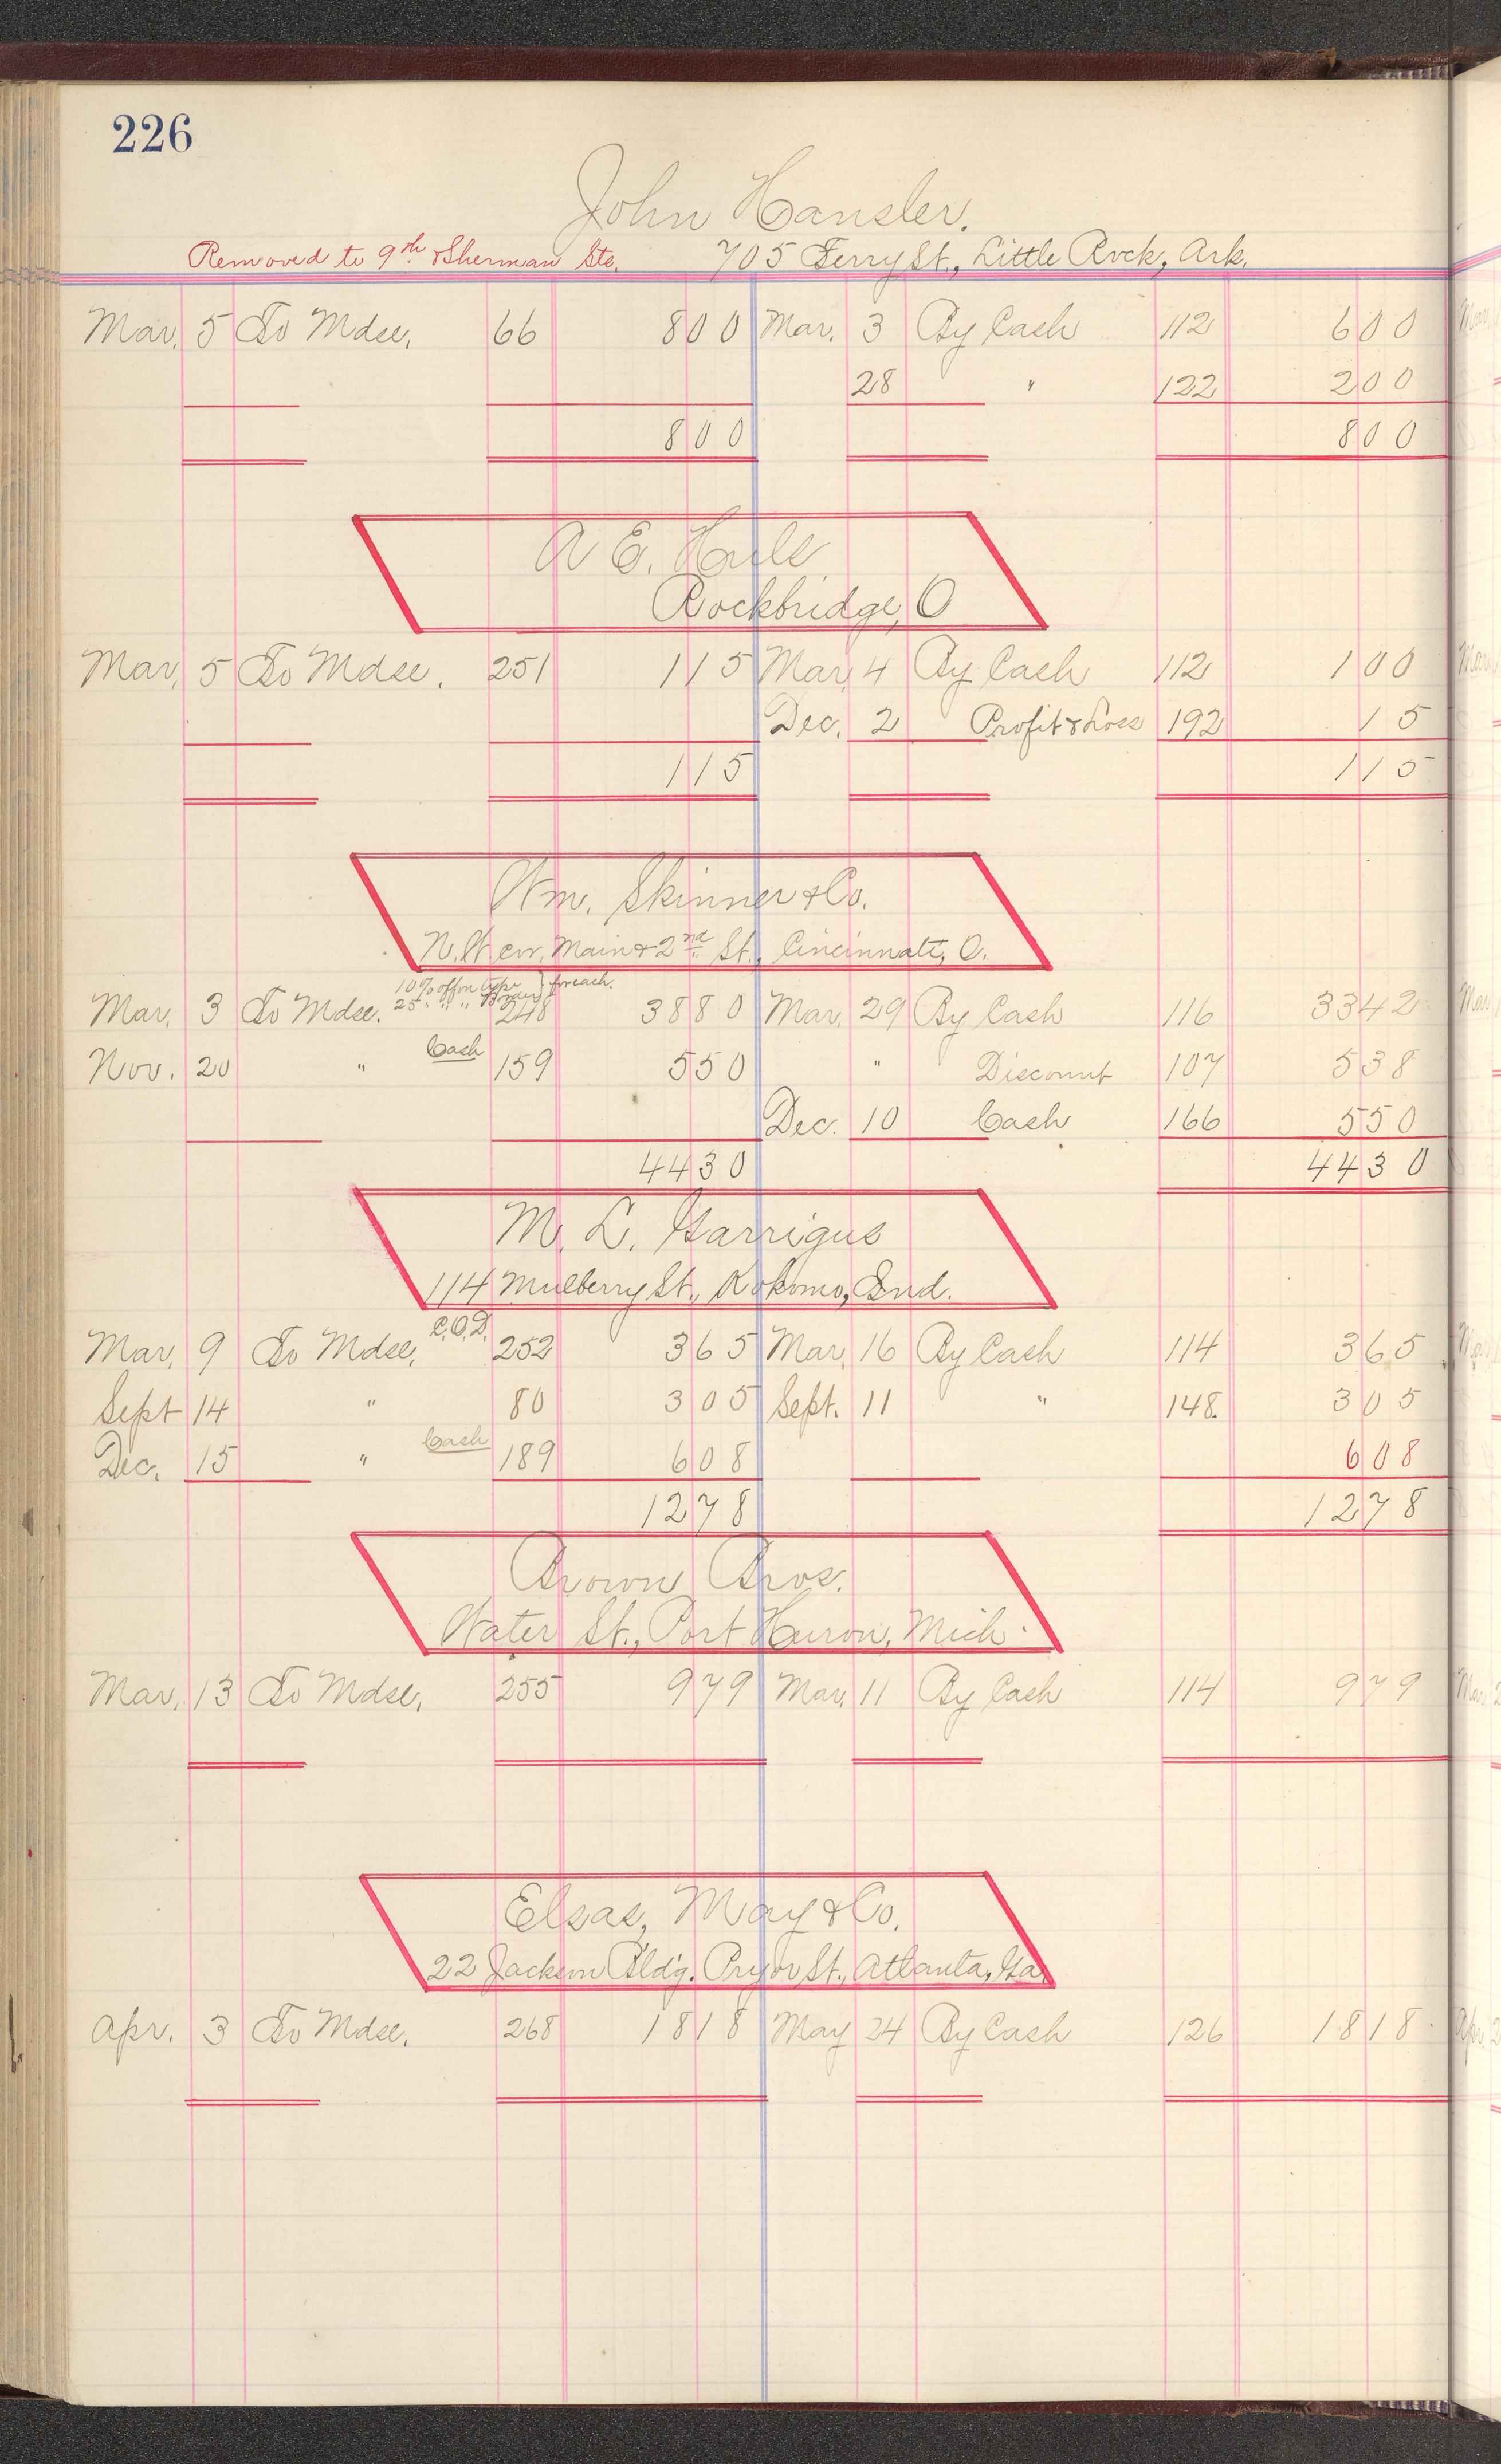 226
John Hansler.
Removed to 9th & Sherman Sts. 705 Ferry St., Little Rock, Ark.
Mar. 5 To Mdse. 66 8 00 Mar. 3 By Cash 112 6 00
28 " 122 2 00
8 00 8 00
A E. Hule
Rockbridge, O
Mar. 5 To Mdse. 251 1 15 Mar. 4 By Cash 112 1 00
Dec. 2 Profit & Loss 192 15
1 15 1 15
Wm. Skinner & Co.
N.W. cor. Main & 2nd St., Cincinnati, O.
10% off on type } for each.
25 " " "
Mar. 3 To Mdse. 248 38 80 Mar. 29 By Cash 116 33 42
Nov. 20 " Cash 159 5 50 " Discount 107 5 38
Dec. 10 Cash 166 5 50
44 30 44 30
M. L. Garrigus
114 Mulberry St., Kokomo, Ind.
Mar. 9 To Mdse. C.O.D. 252 3 65 Mar. 16 By Cash 114 3 65
Sept 14 " 80 3 05 Sept. 11 " 148. 3 05
Dec. 15 " Cash 189 6 08 6 08
12 78 12 78
Brown Bros.
Water St., Port Huron, Mich.
Mar. 13 To Mdse. 255 9 79 Mar. 11 By Cash 114 9 79
Elsas, May & Co.
22 Jackson Bldg. Pryor St., Atlanta, Ga.
Apr. 3 To Mdse. 268 18 18 May 24 By Cash 126 18 18